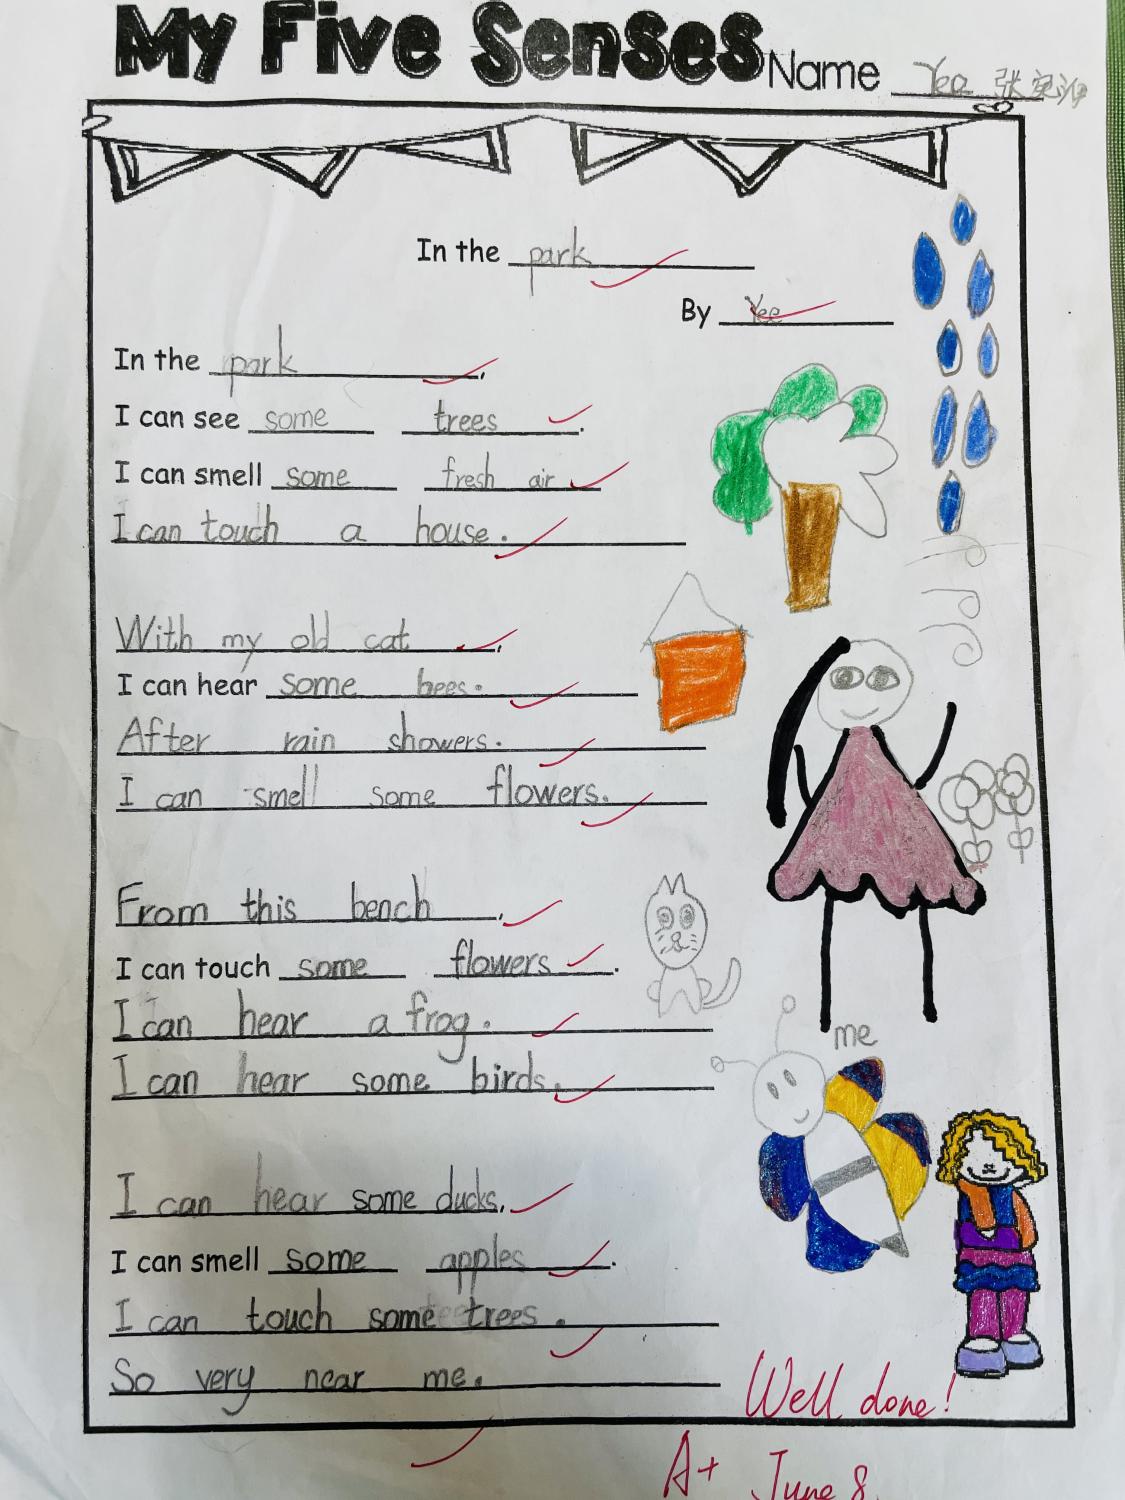 My Five Senses Name Yee 张
In the park
By Yee
In the park,
I can see some trees.
I can smell some fresh air.
I can touch a house.
With my old cat,
I can hear some bees.
After rain showers.
I can smell some flowers.
From this bench,
I can touch some flowers.
I can hear a frog.
I can hear some birds.
me
I can hear some ducks.
I can smell some apples.
I can touch some trees.
So very near me.
Well done!
A+ June 8